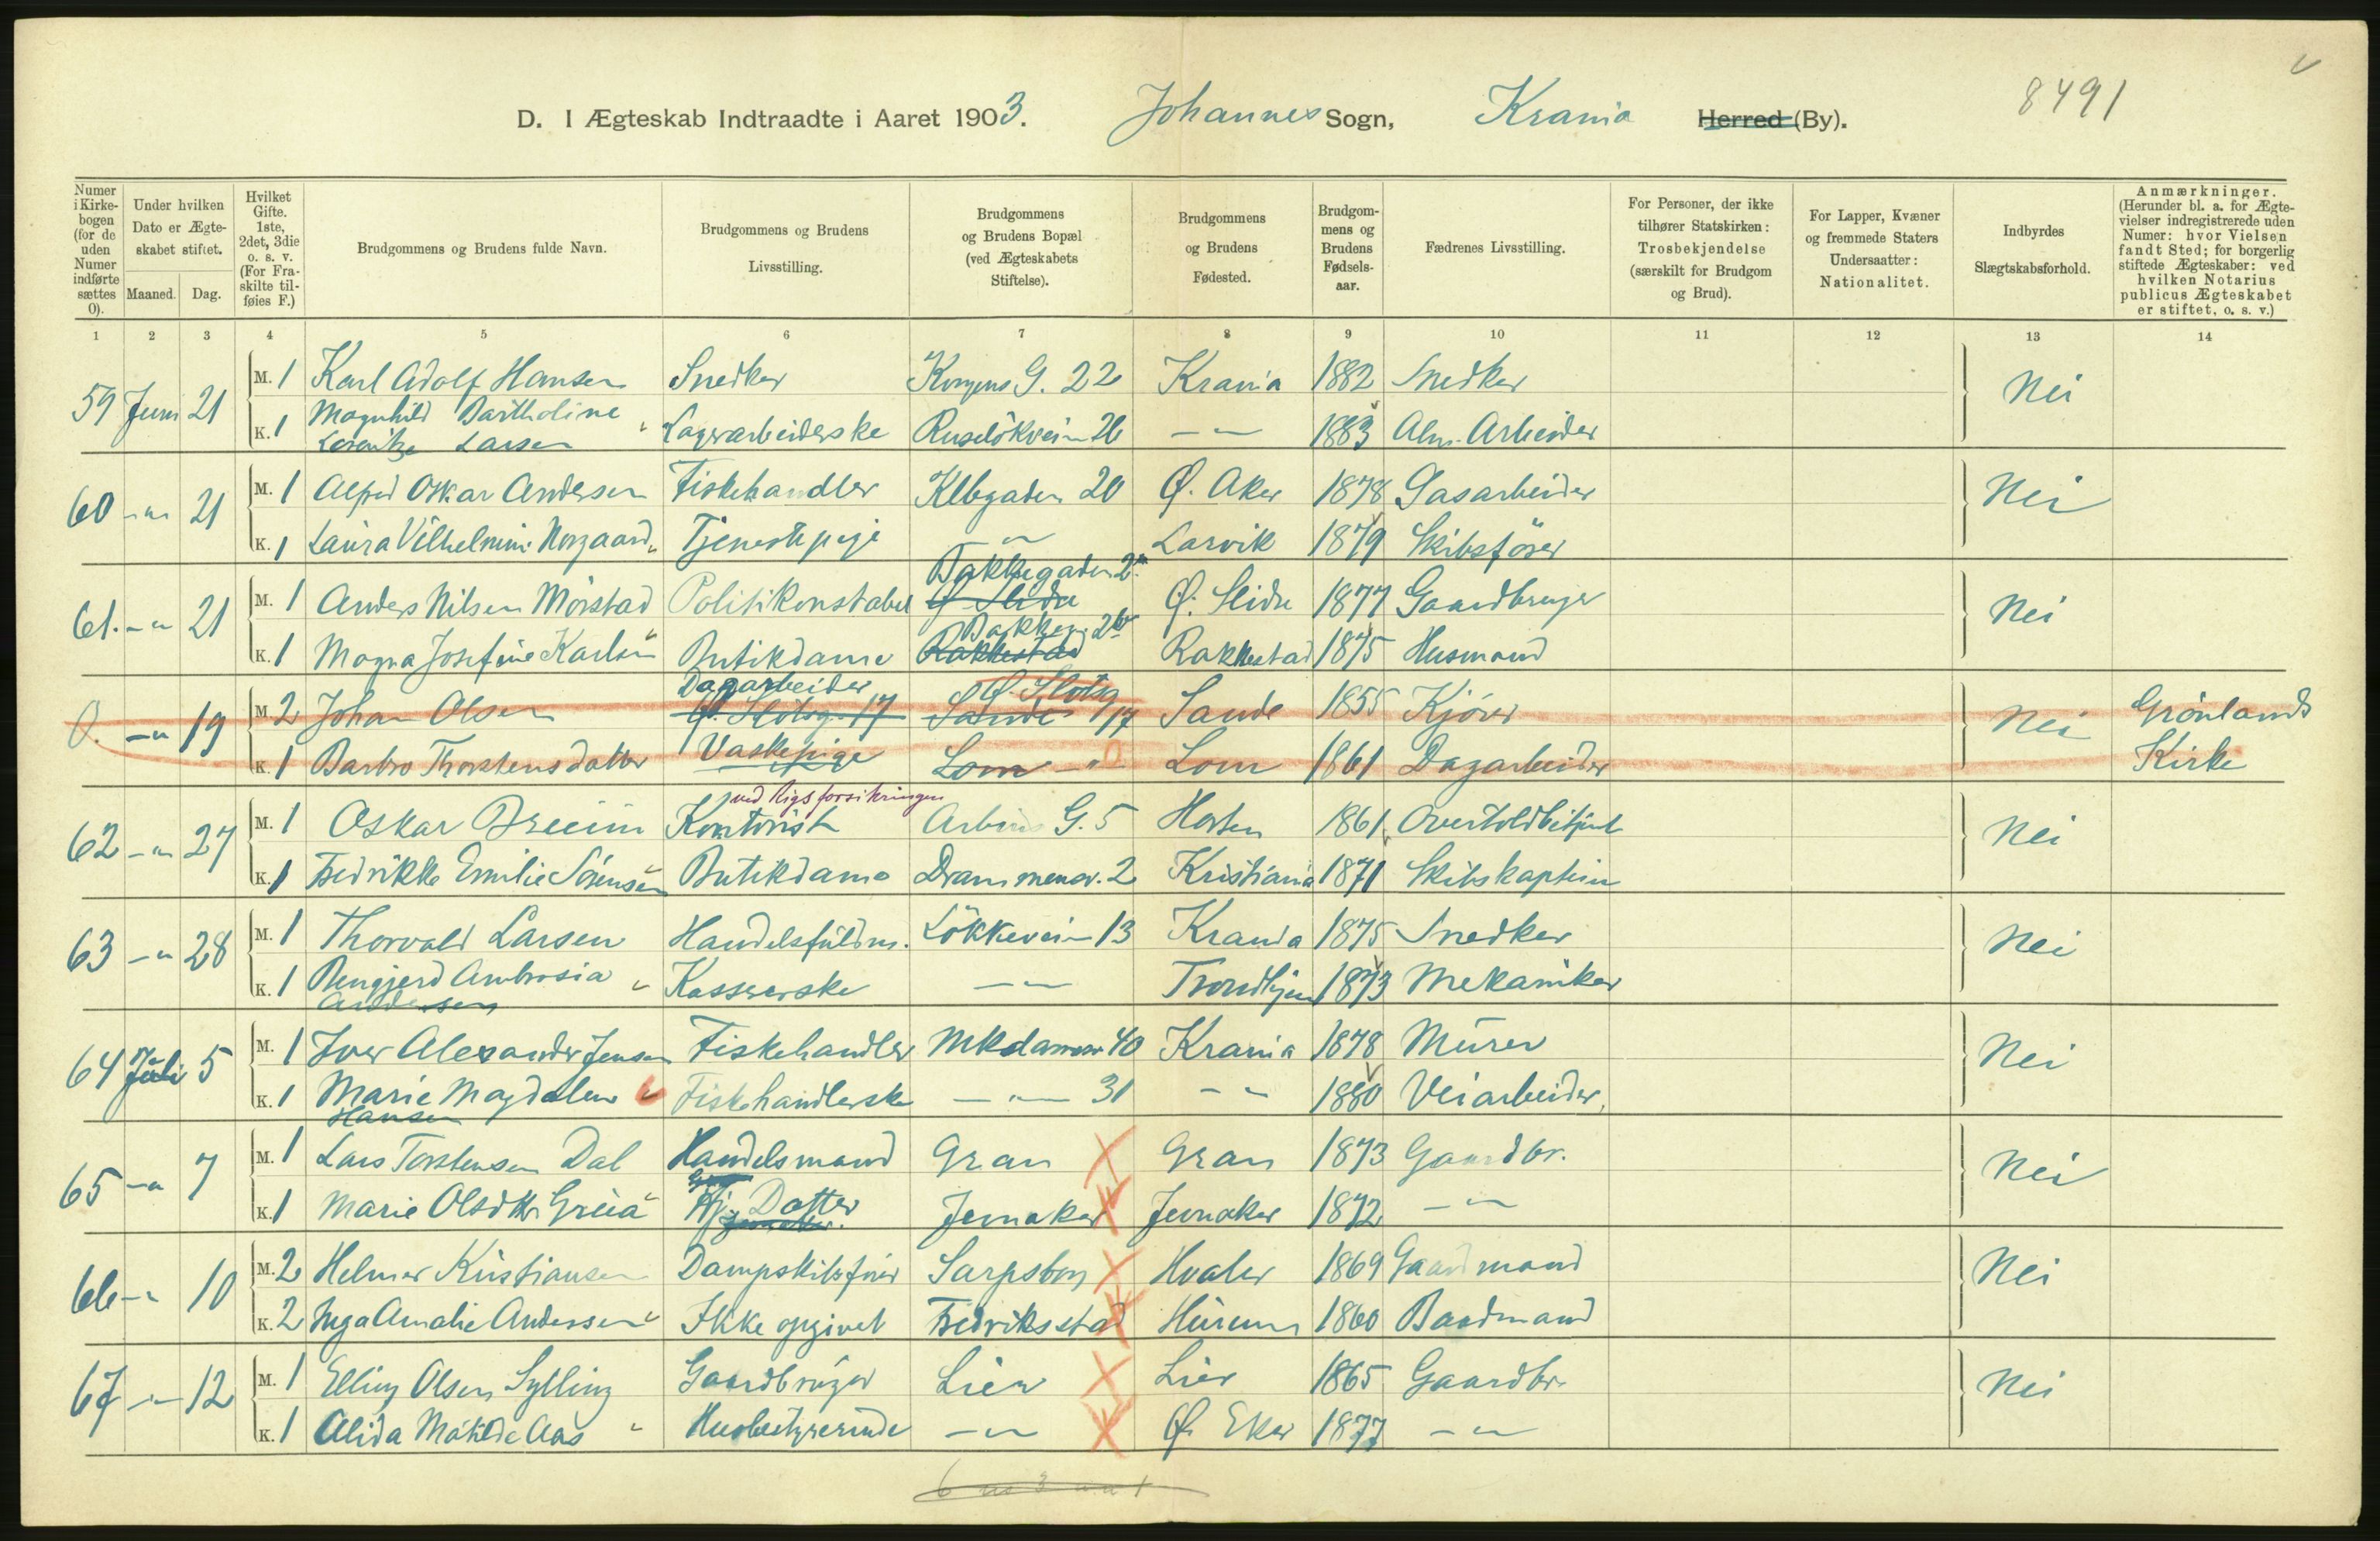 8491
D. I Ægteskab Indtraadte i Aaret 1903. Johannes Sogn, Krania Herred (By).
Numer i Kirke-bogen (for de uden Numer indførte sættes 0).
Under hvilken Dato er Ægte-skabet stiftet.
Maaned. Dag.
Hvilket Gifte. 1ste, 2det, 3die o. s. v. (For Fra-skilte til-føies F.)
Brudgommens og Brudens fulde Navn.
Brudgommens og Brudens Livsstilling.
Brudgommens og Brudens Bopæl (ved Ægteskabets Stiftelse).
Brudgommens og Brudens Fødested.
Brudgom-mens og Brudens Fødsels-aar.
Fædrenes Livsstilling.
For Personer, der ikke tilhører Statskirken: Trosbekjendelse (særskilt for Brudgom og Brud).
For Lapper, Kvæner og fremmede Staters Undersaatter: Nationalitet.
Indbyrdes Slægtskabsforhold.
Anmærkninger. (Herunder bl. a. for Ægte-vielser indregistrerede uden Numer: hvor Vielsen fandt Sted; for borgerlig stiftede Ægteskaber: ved hvilken Notarius publicus Ægteskabet er stiftet, o. s. v.)
1 2 3 4 5 6 7 8 9 10 11 12 13 14
59 Juni 21 M. 1 Karl Adolf Hansen Snedker Kongens G. 22 Krania 1882 Snedker Nei
K. 1 Magnhild Bartholine Lorentze Larsen Lagerarbeiderske Ruselökvein 26 - " - 1883 Alm. Arbeider
60 - " - 21 M. 1 Alfred Oskar Andersen Fiskehandler 20 Ø. Aker 1878 Gasarbeider Nei
K. 1 Laura Vilhelmine Norgaard Tjenestepige - " - Larvik 1879 Skibsförer
61. - " 21 M. 1 Anders Nilsen Mörstad Politikonstabel Bakkegaden Ø. Slidre Ø. Slidre 1877 Gaardbruger Nei
K. 1 Magna Josefine Karlsen Butikdame Rakkestad Rakkestad 1875 Husmand
0. - " 19 M. 2 Johan Olsen Dagarbeider Ø. Slotsg. 17 Sande Ø. Slotsg 17 Sande 1855 Kjörer Nei Grönlands
K. 1 Barbro Thorstensdatter Vaskepige Lom - " - Lom 1861 Dagarbeider Kirke
62 - " - 27 M. 1 Oskar Kontorist ved Rigsforsikringen Arbins G. 5 Horten 1861 Overtoldbetjent Nei
K. 1 Fredrikke Emilie Sörensen Butikdame Drammensv. 2 Kristiania 1871 Skibskaptein
63 - " 28 M. 1 Thorvald Larsen Handelsfuldm. Lökkevein 13 Krania 1875 Snedker Nei
K. 1 Rengjerd Ambrosia Andersen Kassererske - " - Trondhjem 1873 Mekaniker
64 Juli 5 M. 1 Iver Alexander Jensen Fiskehandler 40 Krania 1878 Murer Nei
K. 1 Marie Magdalene Hansen Fiskehandlerske - " - 31 - " - 1880 Veiarbeider
65 - " 7 M. 1 Lars Torstensen Dal Handelsmand Gran Gran 1873 Gaardbr. Nei
K. 1 Marie Olsdtr. Datter Jevnaker Jevnaker 1872 - " -
66 - " 10 M. 2 Helmer Kristiansen Dampskibsförer Sarpsborg Hvaler 1869 Gaardmand Nei
K. 2 Inga Amalie Andersen Ikke opgivet Fredriksstad Hurum 1860 Baadmand
67 - " - 12 M. 1 Elling Olsen Sylling Gaardbruger Lier Lier 1865 Gaardbr. Nei
K. 1 Alida Matilde Aas Husbestyrerinde - " - Ø. Eker 1877 - " -